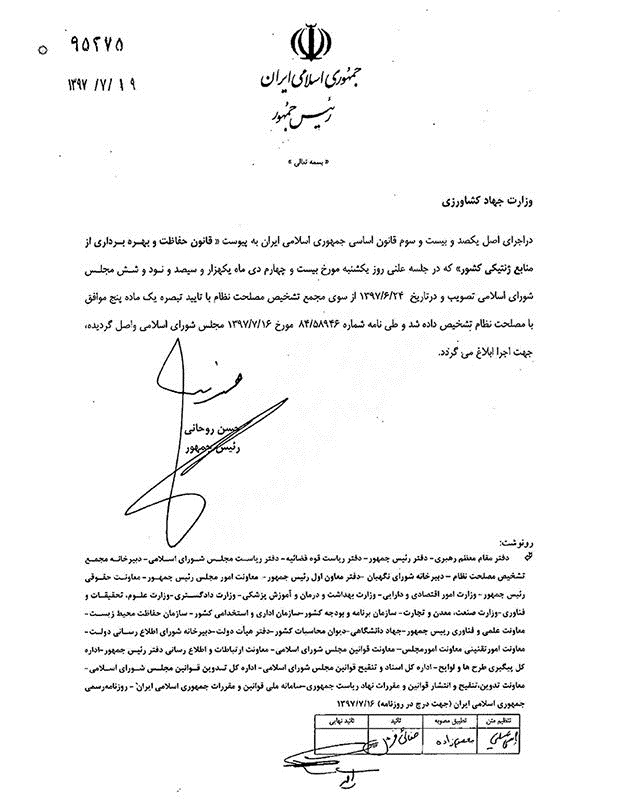 ۹۵۲۷۵
۱۳۹۷ /۷/ ۱۹
جمهوری اسلامی ایران
رئیس جمهور
« بسمه تعالی »
وزارت جهاد کشاورزی
دراجرای اصل یکصد و بیست و سوم قانون اساسی جمهوری اسلامی ایران به پیوست « قانون حفاظت و بهره برداری از
منابع ژنتیکی کشور» که در جلسه علنی روز یکشنبه مورخ بیست و چهارم دی ماه یکهزار و سیصد و نود و شش مجلس
شورای اسلامی تصویب و درتاریخ ۱۳۹۷/۶/۲۴ از سوی مجمع تشخیص مصلحت نظام با تایید تبصره یک ماده پنج موافق
با مصلحت نظام تشخیص داده شد و طی نامه شماره ۸۴/۵۸۹۴۶ مورخ ۱۳۹۷/۷/۱۶ مجلس شورای اسلامی واصل گردیده،
جهت اجرا ابلاغ می گردد.
حسن روحانی
رئیس جمهور
رونوشت:
دفتر مقام معظم رهبری- دفتر رئیس جمهور- دفتر ریاست قوه قضائیه- دفتر ریاست مجلس شورای اسلامی- دبیرخانه مجمع
تشخیص مصلحت نظام – دبیرخانه شورای نگهبان -دفتر معاون اول رئیس جمهور- معاونت امور مجلس رئیس جمهور- معاونت حقوقی
رئیس جمهور- وزارت امور اقتصادی و دارایی- وزارت بهداشت و درمان و آموزش پزشکی- وزارت دادگستری- وزارت علوم، تحقیقات و
فناوری- وزارت صنعت، معدن و تجارت- سازمان برنامه و بودجه کشور-سازمان اداری و استخدامی کشور- سازمان حفاظت محیط زیست-
معاونت علمی و فناوری رییس جمهور-جهاد دانشگاهی- دیوان محاسبات کشور-دفتر هیأت دولت-دبیرخانه شورای اطلاع رسانی دولت-
معاونت امورتقنینی معاونت امورمجلس- معاونت قوانین مجلس شورای اسلامی- معاونت ارتباطات و اطلاع رسانی دفتر رئیس جمهور-اداره
کل پیگیری طرح ها و لوایح- اداره کل اسناد و تنقیح قوانین مجلس شورای اسلامی- اداره کل تدوین قوانین مجلس شورای اسلامی-
معاونت تدوین،تنقیح و انتشار قوانین و مقررات نهاد ریاست جمهوری-سامانه ملی قوانین و مقررات جمهوری اسلامی ایران - روزنامه‌رسمی
جمهوری اسلامی ایران (جهت درج در روزنامه) ۱۳۹۷/۷/۱۶
تنظیم متن تطبیق مصوبه تائید تائید نهایی